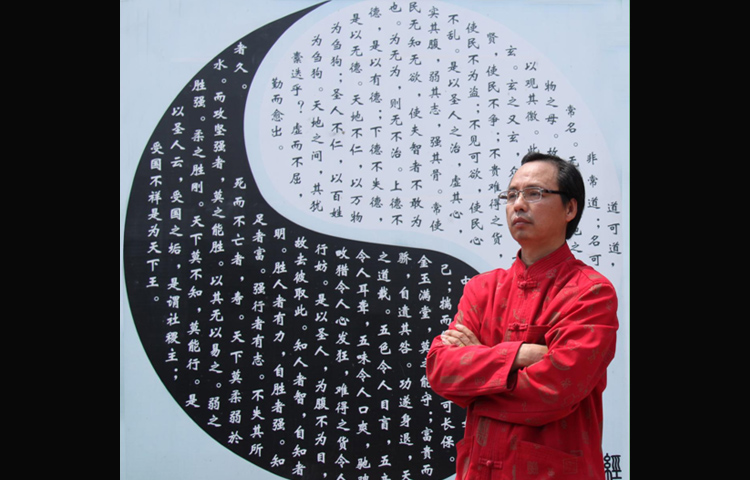 道可道，
非常道；名可
常名。无
物之母。故
以观其徼。此
玄。玄之又玄
贤，使民不争；不贵难得之货，
使民不为盗；不见可欲，使民心
不乱。是以圣人之治，虚其心，
实其腹，弱其志，强其骨。常使
民无知无欲，使夫智者不敢为
也。为无为，则无不治。上德不
德，是以有德；下德不失德，
是以无德。天地不仁，以万物
为刍狗；圣人不仁，以百姓
为刍狗。天地之间，其犹
素迭乎？虚而不屈，
勤而愈出。
己；揣而 可长保。
金玉满堂，莫 能守；富贵而
骄，自遗其咎。功遂身退，天
之道哉。五色令人目盲，五
令人耳聋，五味令人口爽，驰
畋猎令人心发狂，难得之货令人
行妨。是以圣人，为腹不为目，
故去彼取此。知人者智，自知者
明。胜人者有力，自胜者强。知
足者富。强行者有志。不失其所
者久。 死而不亡者 寿。天下莫柔弱於
水。而攻坚强者，莫之能胜。以其无以易之。弱之
胜强。柔之胜刚。天下莫不知，莫能行。是
以圣人云，受国之垢，是谓社稷主；
受国不祥是为天下王。
經